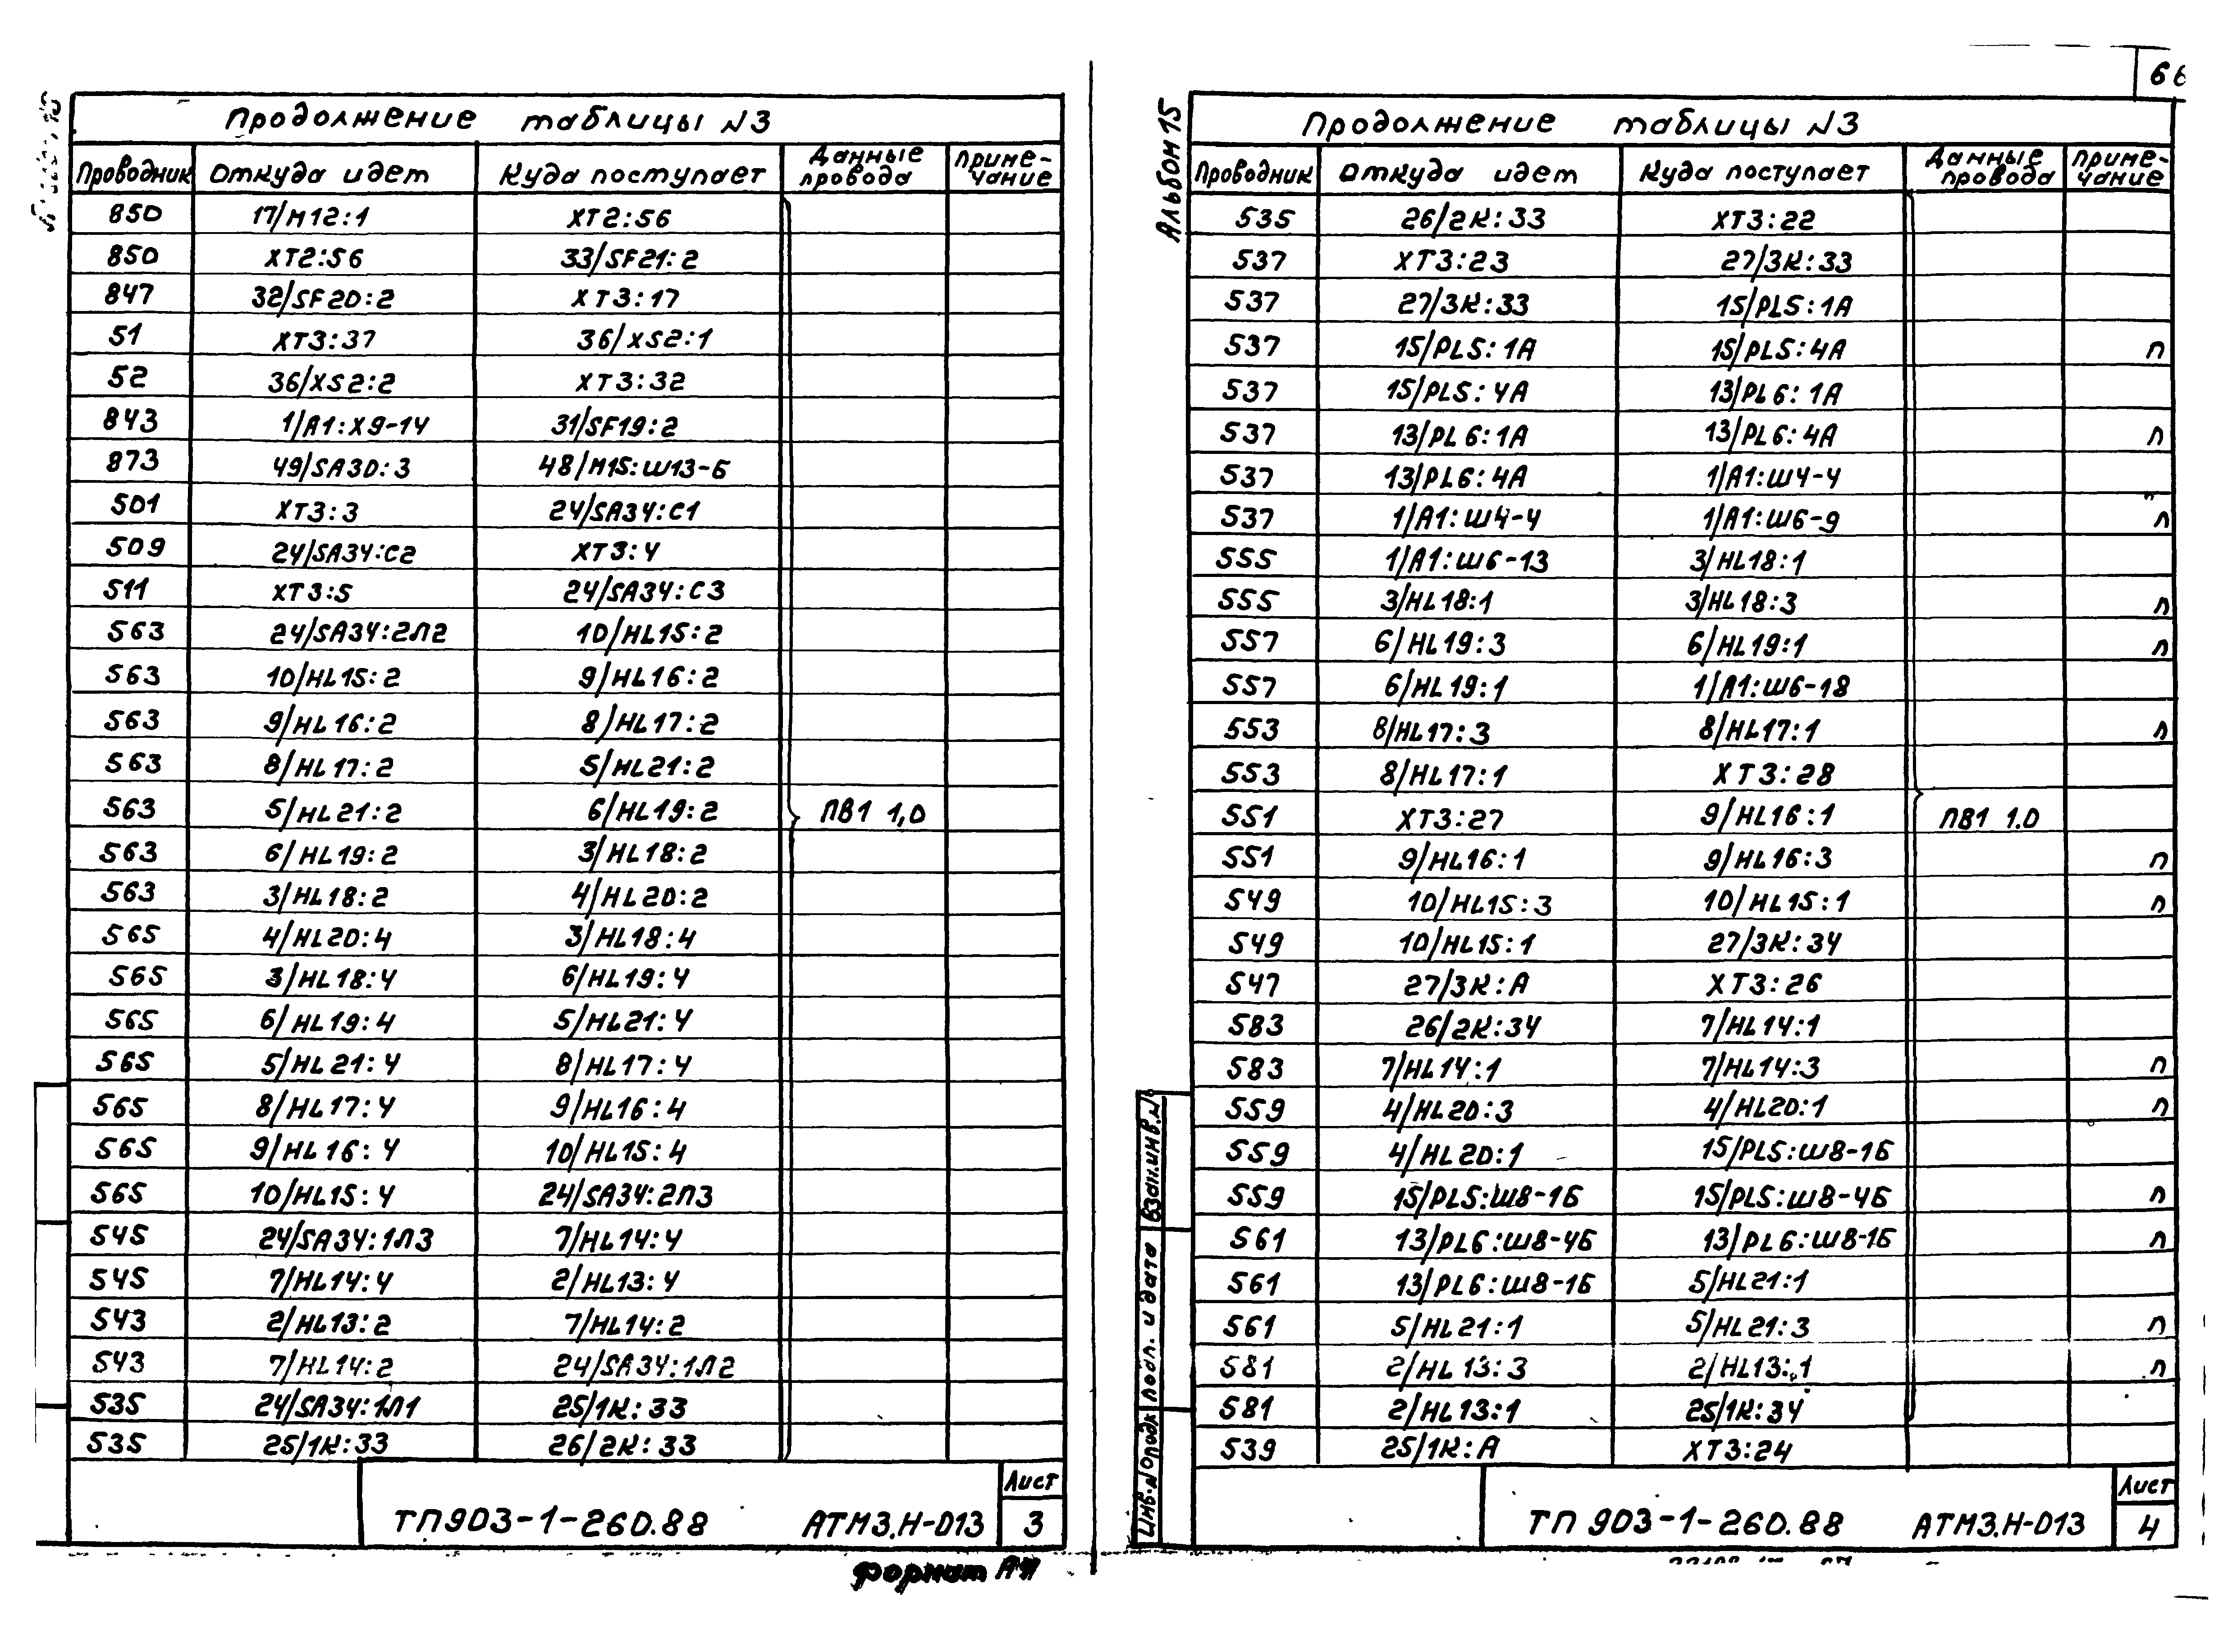 66
Продолжение таблицы N3
Проводник Откуда идет Куда поступает Данные провода Приме-чание
850 17/М12:1 ХТ2:56
850 ХТ2:56 33/SF21:2
847 32/SF20:2 ХТ3:17
51 ХТ3:37 36/XS2:1
52 36/XS2:2 ХТ3:32
843 1/А1:Х9-14 31/SF19:2
873 49/SA30:3 48/М15:Ш13-Б
501 ХТ3:3 24/SA34:С1
509 24/SA34:С2 ХТ3:4
511 ХТ3:5 24/SA34:С3
563 24/SA34:2Л2 10/HL15:2
563 10/HL15:2 9/HL16:2
563 9/HL16:2 8/HL17:2
563 8/HL17:2 5/HL21:2
563 5/HL21:2 6/HL19:2 ПВ1 1,0
563 6/HL19:2 3/HL18:2
563 3/HL18:2 4/HL20:2
565 4/HL20:4 3/HL18:4
565 3/HL18:4 6/HL19:4
565 6/HL19:4 5/HL21:4
565 5/HL21:4 8/HL17:4
565 8/HL17:4 9/HL16:4
565 9/HL16:4 10/HL15:4
565 10/HL15:4 24/SA34:2Л3
545 24/SA34:1Л3 7/HL14:4
545 7/HL14:4 2/HL13:4
543 2/HL13:2 7/HL14:2
543 7/HL14:2 24/SA34:1Л2
535 24/SA34:1Л1 25/1К:33
535 25/1К:33 26/2К:33
ТП903-1-260.88 АТМ3.Н-013 Лист 3
Формат А4
Альбом 15
Продолжение таблицы N3
Проводник Откуда идет Куда поступает Данные провода Приме-чание
535 26/2К:33 ХТ3:22
537 ХТ3:23 27/3К:33
537 27/3К:33 15/PL5:1А
537 15/PL5:1А 15/PL5:4А п
537 15/PL5:4А 13/PL6:1А
537 13/PL6:1А 13/PL6:4А п
537 13/PL6:4А 1/А1:Ш4-4
537 1/А1:Ш4-4 1/А1:Ш6-9 п
555 1/А1:Ш6-13 3/HL18:1
555 3/HL18:1 3/HL18:3 п
557 6/HL19:3 6/HL19:1 п
557 6/HL19:1 1/А1:Ш6-18
553 8/HL17:3 8/HL17:1 п
553 8/HL17:1 ХТ3:28
551 ХТ3:27 9/HL16:1 ПВ1 1.0
551 9/HL16:1 9/HL16:3 п
549 10/HL15:3 10/HL15:1 п
549 10/HL15:1 27/3К:34
547 27/3К:А ХТ3:26
583 26/2К:34 7/HL14:1
583 7/HL14:1 7/HL14:3 п
559 4/HL20:3 4/HL20:1 п
559 4/HL20:1 15/PL5:Ш8-1Б
559 15/PL5:Ш8-1Б 15/PL5:Ш8-4Б п
561 13/PL6:Ш8-4Б 13/PL6:Ш8-1Б п
561 13/PL6:Ш8-1Б 5/HL21:1
561 5/HL21:1 5/HL21:3 п
581 2/HL13:3 2/HL13:1 п
581 2/HL13:1 25/1К:34
539 25/1К:А ХТ3:24
ТП 903-1-260.88 АТМ3.Н-013 Лист 4
Инв.N подл Подп. и дата Взам.инв.N